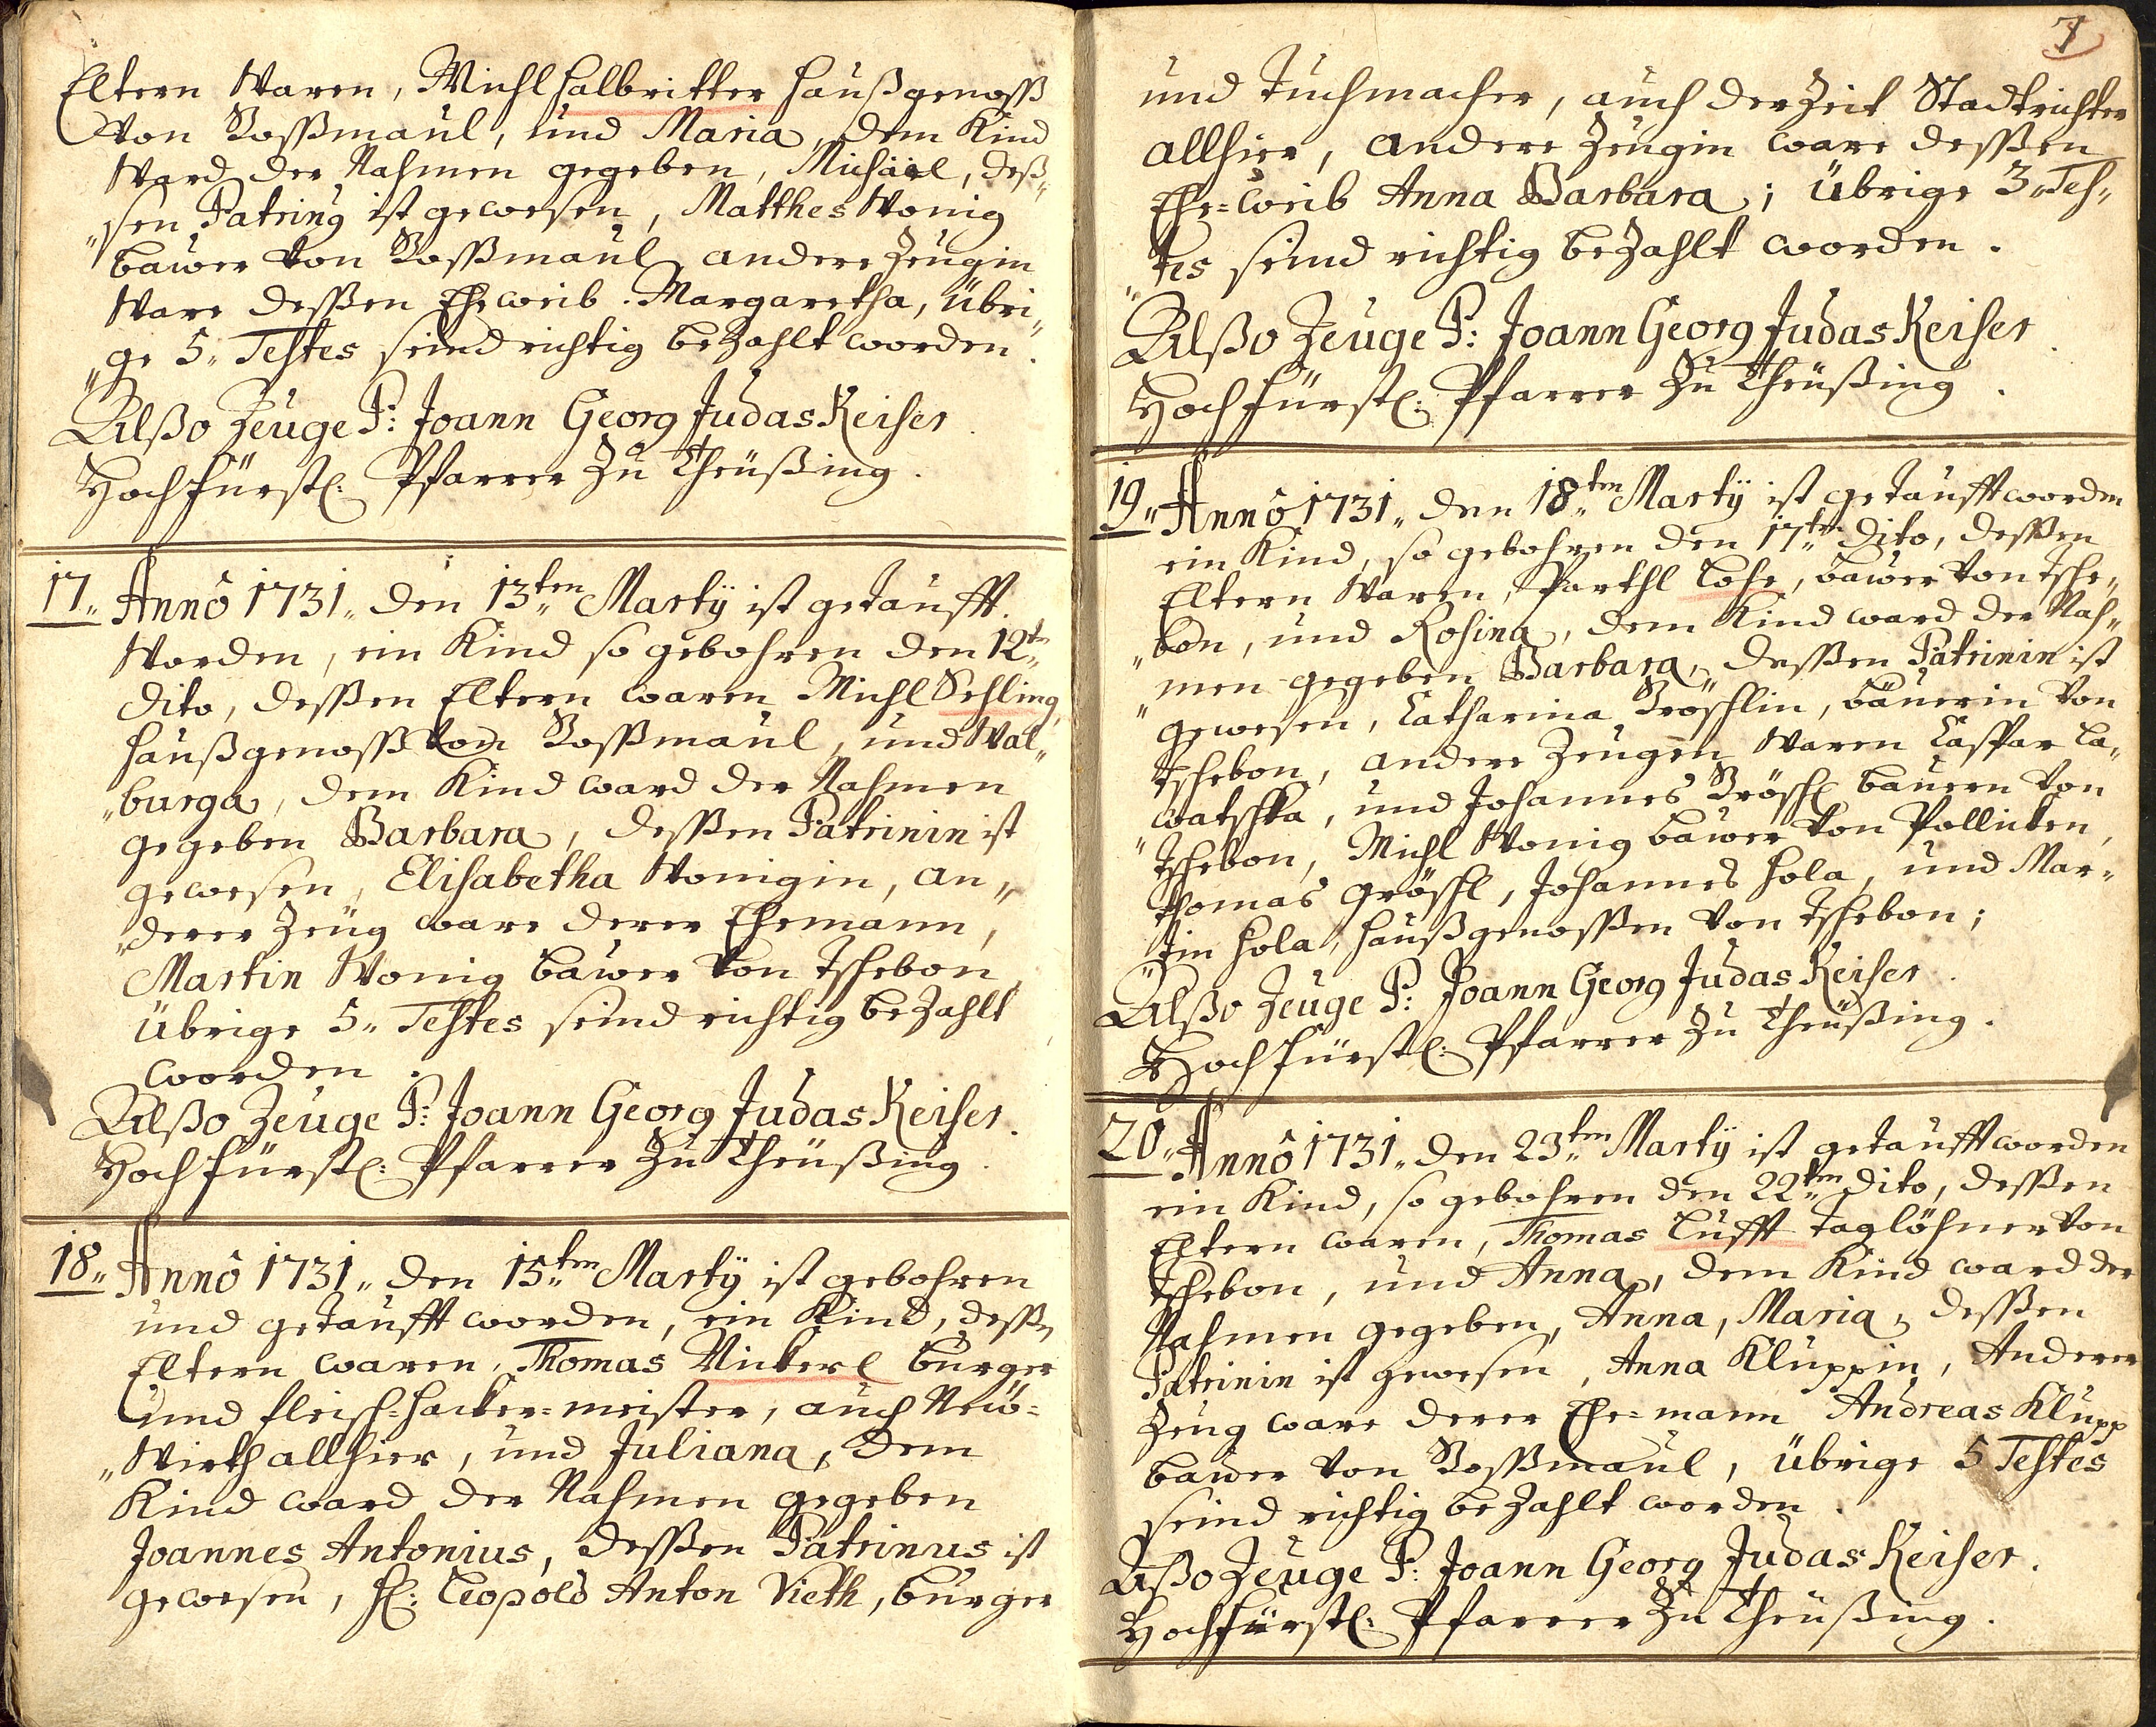 Eltern Waren, Michl Halbritter Haußgenoss
von Kossmaul, und Maria, dem Kind
Ward der Nahmen gegeben, Michäel, deß„
„sen Patrinꝰ ist gewesen, Matthes Wonig
bawer von Kossmaul, andere Zeugin
Ware dessen Eheweib. Margaretha, übri„
„ge 5„ Testes seind richtig beZahlt worden.
Alßo Zeuge P: Joann Georg Judas Keiser.
Hochfürstl: Pfarrer Zu Theüßing.
17„ Annô 1731„ den 13„ten Martÿ ist getaufft
Worden, ein Kind so gebohren den 12„tn
dito, dessen Eltern waren Michl Sehling,
Haußgenoss von Kossmaul, und Wal„
„burga, dem Kind ward der Nahmen
gegeben Barbara, dessen Patrinin ist
gewesen, Elisabetha Wonigin, an„
„derer Zeug ware derer Ehemann,
Martin Wonig bawer von Tschebon,
übrige 5„ Testes seind richtig beZahlt
worden.
Alßo Zeuge P: Joann Georg Judas Keiser.
Hochfürstl: Pfarrer Zu Theüßing.
18„ Annô 1731„ den 15„ten Martÿ ist gebohren
und getaufft worden, ein Kind, dessn
Eltern waren, Thomas Nickerl burger
und fleisch=hacker=meister, auch Neü=
„Wirth allhier, und Juliana, dem
Kind ward der Nahmen gegeben
Joannes Antonius, dessen Patrinus ist
gewesen, H: Leopold Anton Vieth, burger
7
und Tuchmacher, auch der Zeit Stadtrichter
allhier, andere Zeugin ware dessen
Ehe=weib Anna Barbara; übrige 3„ Tes„
„tes seind richtig beZahlt worden.
Alßo Zeuge P: Joann Georg Judas Keiser.
Hochfürstl: Pfarrer Zu Theüßing.
19„ Annô 1731„ den 18„ten Martÿ ist getaufft worden
ein Kind, so gebohren den 17„tn dito, dessen
Eltern Waren, Parthl Lohe, bawer von Tsche„
„bon, und Rosina, dem Kind ward der Nah„
„men gegeben Barbara, dessen Patrinin ist
gewesen, Catharina Bröschlin, bäuerin von
Tschebon, andere Zeugen Waren Caspar La„
„watschka, und Johannes Bröschl bauern von
Tschebon, Michl Wonig bawer von Pollicken,
Thomas Gröschl, Johannes Hola, und Mar„
„tin Hola, Haußgenossen von Tschebon;
Alßo Zeuge P: Joann Georg Judas Keiser.
Hochfürstl: Pfarrer Zu Theüßing.
20„ Annô 1731„ den 23„ten Martÿ ist getaufft worden
ein Kind, so gebohren den 22„ten dito, dessen
Eltern waren, Thomas Lufft taglöhner von
Tschebon, und Anna, dem Kind ward der
Nahmen gegeben, Anna, Maria, dessen
Patrinin ist gewesen, Anna Kluppin, Anderer
Zeug ware derer Ehe=mann Andreas Klupp
bawer von Kossmaul, übrige 5 Testes
seind richtig beZahlt worden.
Alßo Zeuge P: Joann Georg Judas Keiser.
Hochfürstl: Pfarrer Zu Theüßing.